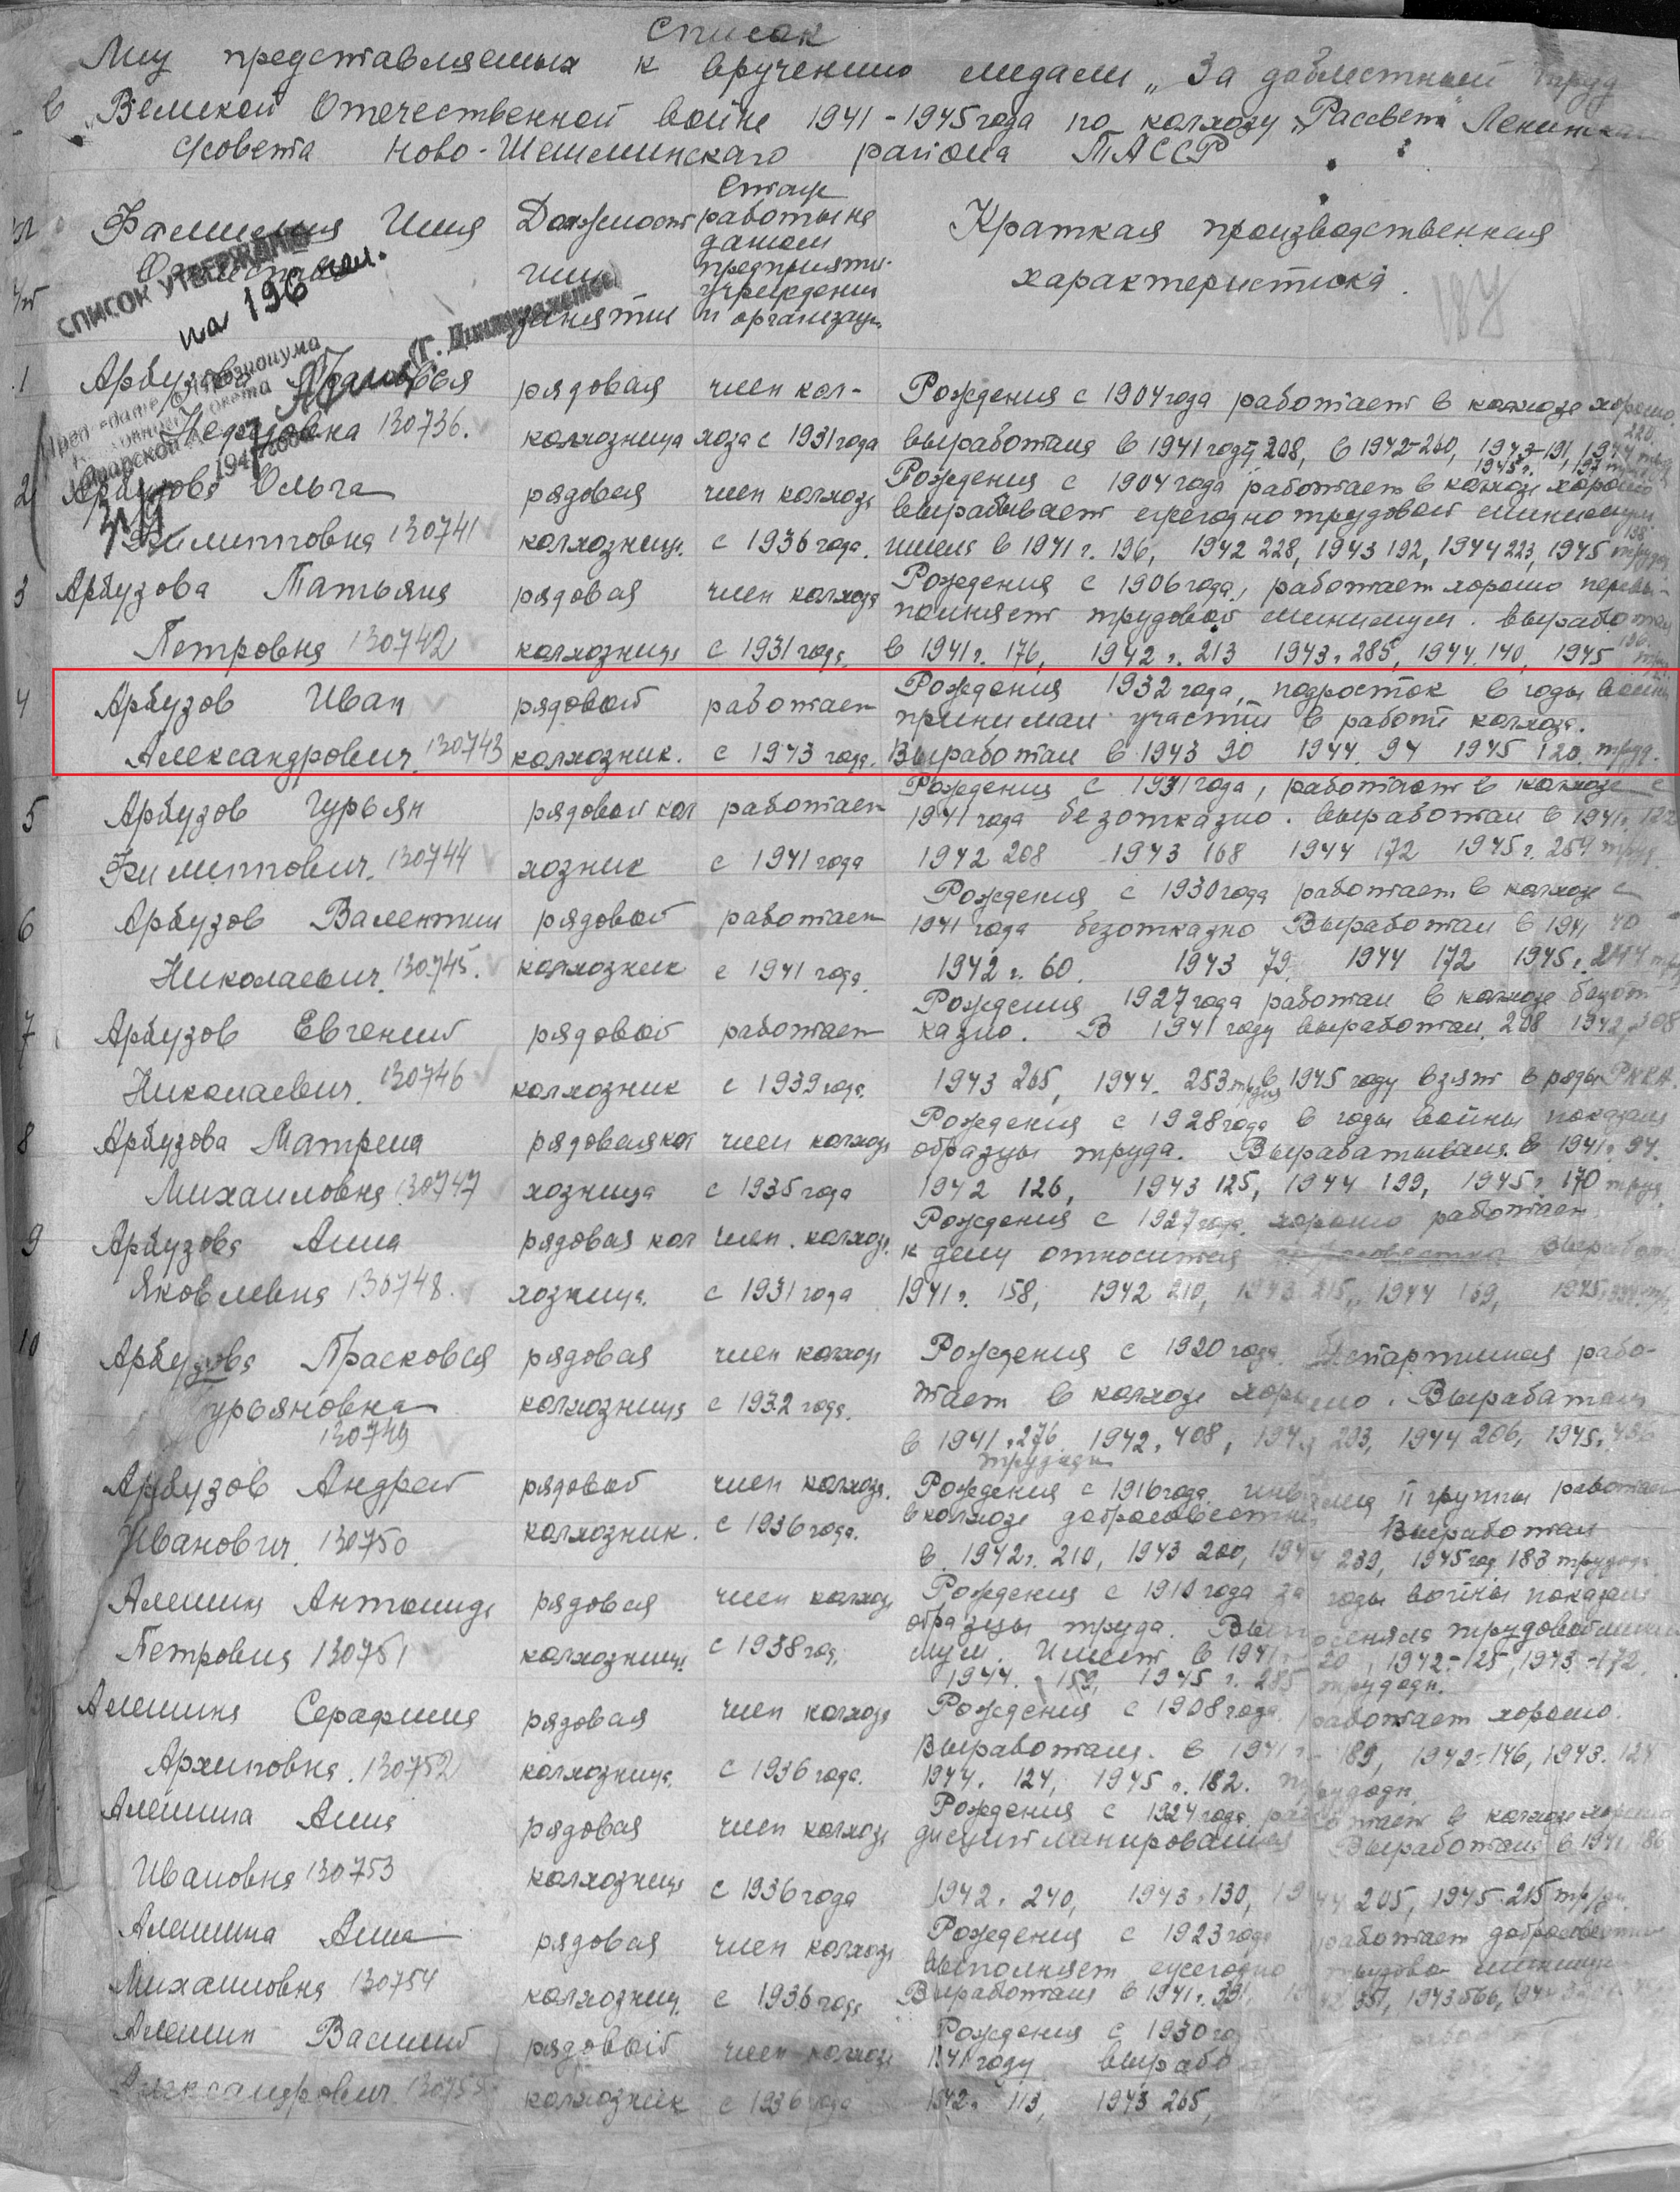 Список
Лиц представляемых к вручению медали „За доблестный труд
в Великой Отечественной войне 1941-1945 года по колхозу „Рассвет"
с/совета Ново-Шешминского района ТАССР
Фамилия Имя
Должност
чин
занятии
Стаж
работы на
даном
предприяти.
учреждении
и организац.
Краткая производственная
характеристика.
187
СПИСОК УТВЕРЖДЕН
на 196 чел.
1 Арбузова рядовая член кол- Рождения с 1904 года работает в колхозе хорошо.
130736. колхозница хоза с 1931 года выработала в 1941 году 208, в 1942-260, 1943-191, 1944
220
1945 г.
2 Арбузова Ольга рядовая член колхоза Рождения с 1904 года работает в колхозе хорошо
вырабатывает ежегодно трудовой минимум
Филипповна 130741 колхозница с 1936 года. имела в 1941 г. 196, 1942 228, 1943 192, 1944 223, 1945
198
3 Арбузова Татьяна рядовая член колхоза Рождения с 1906 года, работает хорошо перевы-
полняет трудовой минимум. выработала
Петровна 130742 колхозница с 1931 года. в 1941 г. 176, 1942 г. 213 1943 г. 285, 1944 140, 1945
4 Арбузов Иван рядовой работает Рождения 1932 года, подросток в годы войны
принимал участии в работе колхоза.
Александрович. 130743 колхозник. с 1943 года. Выработал в 1943 90 1944. 94 1945 120. труд.
5 Арбузов Гурьян рядовой кол работает Рождения с 1931 года, работает в колхозе с
1941 года безотказно. выработал в 1941 г.
Филиппович. 130744 хозник с 1941 года 1942 208 1943 168 1944 172 1945 г. 259 труд.
6 Арбузов Валентин рядовой работает Рождения с 1930 года работает в колхозе с
1941 года безотказно Выработал в 1941 40
Николаевич. 130745. колхозник с 1941 года. 1942 г. 60. 1943 79 1944 172 1945 г.
7 Арбузов Евгений рядовой работает Рождения 1927 года работал в колхозе безот
казно. В 1941 году выработал 208 1942, 308
Николаевич. 130746 колхозник с 1939 года. 1943 265, 1944. 253 в 1945 году взят в ряды РККА
8 Арбузова Матрена рядовая кол член колхоза Рождения с 1928 года в годы войны показала
образцы труда. Вырабатывала в 1941 г. 94.
Михаиловна 130747 хозница с 1935 года 1942 126, 1943 125, 1944 199, 1945 г. 170 труд
9 Арбузова Анна рядовая кол член. колхоза. Рождения с 1927 года. хорошо работает
к делу относится
Яковлевна 130748. хозница. с 1931 года 1941 г. 158, 1942 210, 1943 215, 1944 169, 1945
10 Арбузова Прасковья рядовая член колхоза Рождения с 1920 года. Беспартийная рабо-
Гурьяновна колхозница с 1932 года. тает в колхозе хорошо. Выработала
130749 в 1941 г. 276 1942 г. 408, 1943 293, 1944 206, 1945
трудодн
Арбузов Андрей рядовой член колхоза. Рождения с 1916 года инвалид II группы работает
в колхозе добросовестно Выработал
Иванович. 130750 колхозник. с 1936 года. в 1942 г. 210, 1943 200, 1944 239, 1945 год 183 трудодн
Алешина Антонида рядовая член колхоза Рождения с 1910 года за годы войны показала
образцы труда. Выполняла трудовой мини
Петровна 130751 колхозница. с 1938 год. мум. Имеет в 1941 20, 1942-125, 1943-172,
1944. 159, 1945 г. 285 трудодн.
Алешина Серафима рядовая член колхоза Рождения с 1908 года. работает хорошо.
Архиповна. 130752 колхозница. с 1936 года. Выработала. в 1941 г. 189, 1942-146, 1943. 124
1944. 124, 1945 г. 182. трудодн.
Алешина Анна рядовая член колхоза Рождения с 1924 года работает в колхозе хорошо
дисциплинированная Выработала в 1941 186
Ивановна 130753 колхозница с 1936 года 1942 г. 240, 1943 г. 130, 1944 205, 1945 215 труд.
Алешина Анна рядовая член колхоза Рождения с 1923 года работает добросовестно
выполняет ежегодно трудовой минимум
Михаиловна 130754 колхозниц. с 1936 года Выработала в 1941 г.
Алешин Василий рядовой член колхоза Рождения с 1930 го
1941 году вырабо
Александрович 13075 колхозник с 1936 года 1942 г. 113, 1943 265,